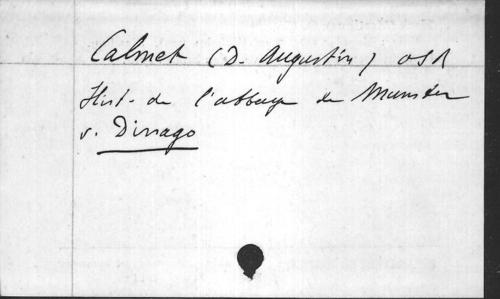 Calmet (D. Augustin) OSB
Hist. de l'abbaye de Munster
v. Dinago